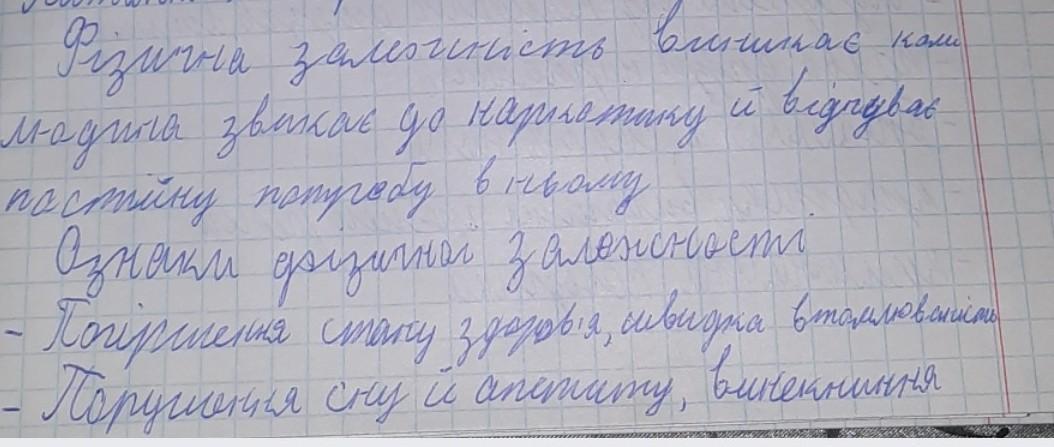 Фізична залежність виникає коли
людина звикає до наркотику й відчуває
постійну потребу в ньому
Ознаки фізичної залежності
- Погіршення стану здоров'я, швидка втомлюваність
- Порушення сну й апетиту, виникнення